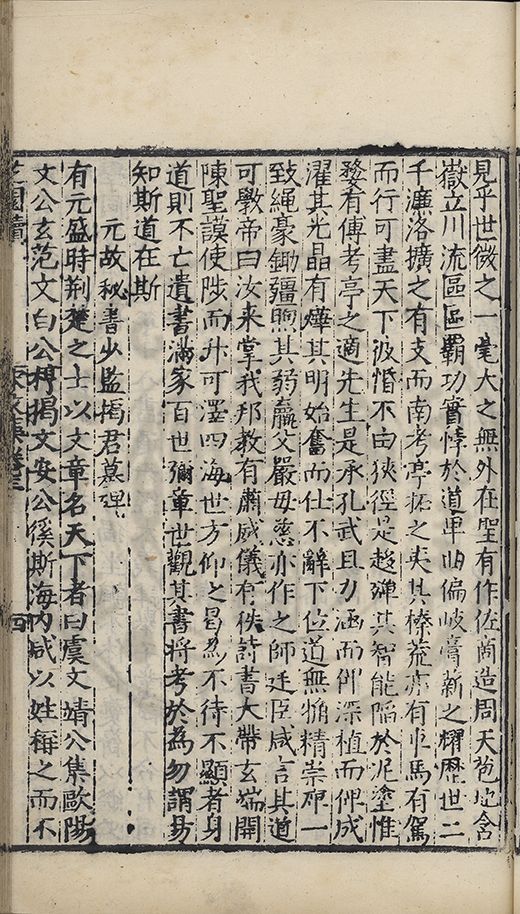 見乎世微之一毫大之無外在聖有作佐商造周天苞地含
嶽立川流區區霸功實悖於道卑㳙偏岐膏薪之耀歷世二
千濂洛擴之有支而南考亭拓之夫其榛荒亦有車馬有駕
而行可盡天下彼惛不由狹徑是趍殫其智能陷於泥塗惟
婺有傳考亭之適先生是承孔武且力涵而伸深植而俾成
濯其光晶有燁其明始奮而仕不辭下位道無惰精崇卑一
致繩豪鋤彊煦其弱羸父嚴母慈亦作之師廷臣咸言其道
可斆帝曰汝来掌我邦教有肅威儀有秩詩書大帶玄端開
陳聖謨使陟而升可澤四海世方仰之曷為不待不顯者身
道則不亡遺書滿家百世彌章世觀其書將考於為勿謂易
知斯道在斯
元故秘書少監揭君墓碑
有元盛時荆楚之士以文章名天下者曰虞文靖公集歐陽
文公玄范文白公梈揭文安公徯斯海内咸以姓稱之而不